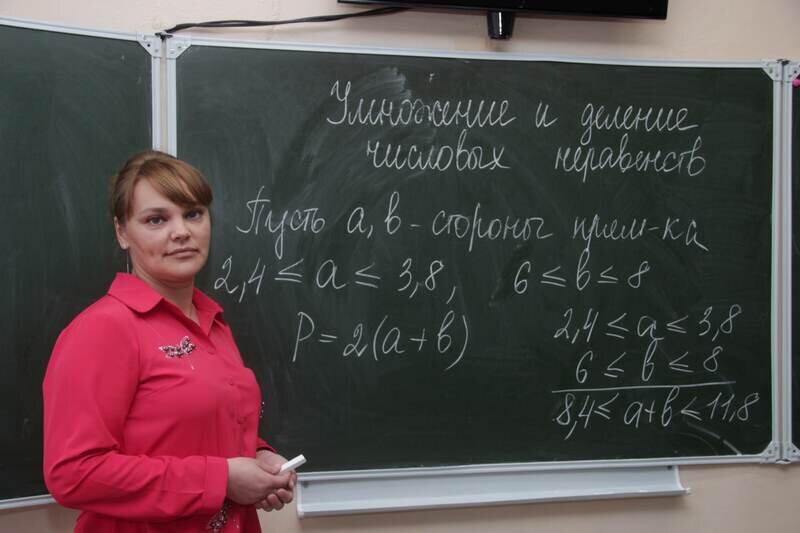 Умножение и деление
числовых неравенств
Пусть а, в - стороны прям-ка
2,4 ≤ а ≤ 3,8, 6 ≤ в ≤ 8
P = 2(а+в)
2,4 ≤ а ≤ 3,8
6 ≤ в ≤ 8
8,4 ≤ а+в ≤ 11,8